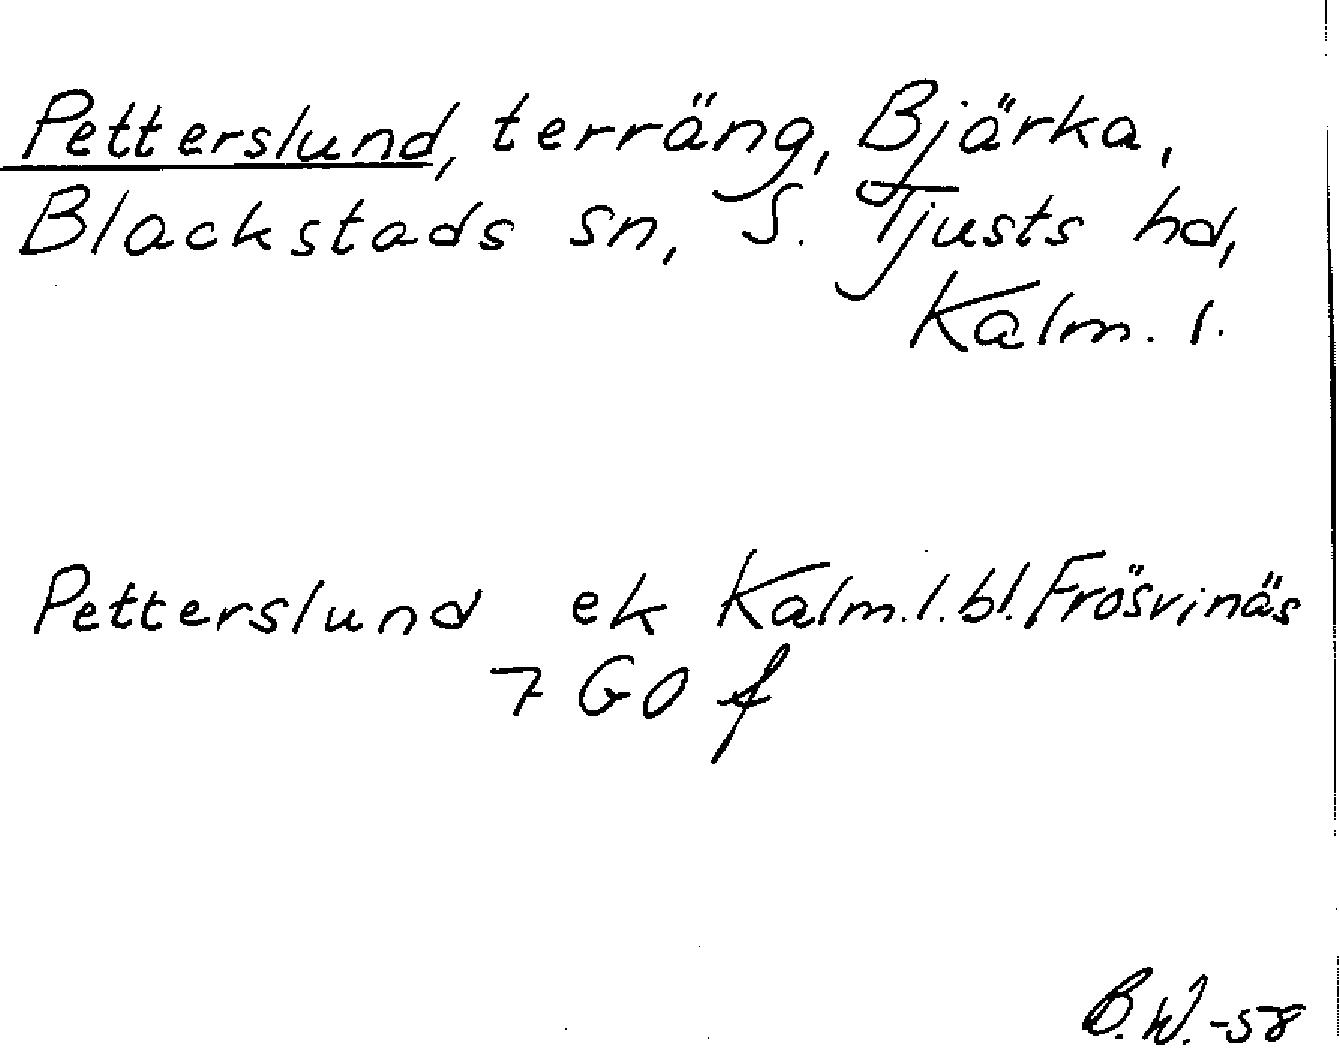 Petterslund, terräng, Bjärka,
Blackstads sn, S. Tjusts hd,
Kalm. l.
Petterslund ek Kalm.l.bl. Frösvinäs
7 GO f
B.W.-58